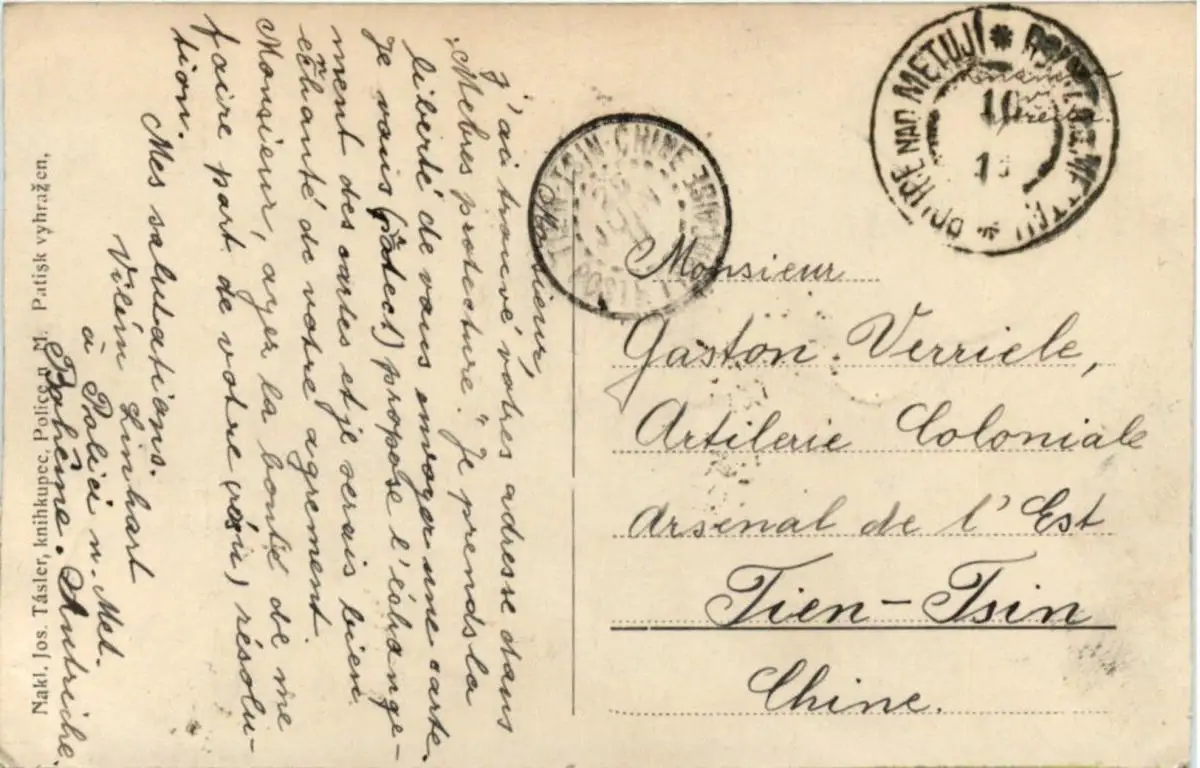 Monsieur,
J'ai trouvé vótres adresse dans
„Mebres protecture." Je prends la
liberté de vous envoyer une carte.
Je vous (játect) propose l'échange-
ment des cartes et je serais bien
echanté de votre agrement.
Monsieur, ayer la bonté de me
faire part de votre (résu) résolu-
tion.
Mes salutations.
Vilém Linhart
à Polici n. Met.
Bohême. Autriche.
Nakl. Jos. Tásler, knihkupec, Police n. M. Patisk vyhražen.
TIEN-TSIN-CHINE
POSTE FRANÇAISE
POLICE NAD METUJÍ
10
Monsieur
Gaston Verriele,
Artilerie Coloniale
Arsenal de l'Est
Tien-Tsin
Chine.